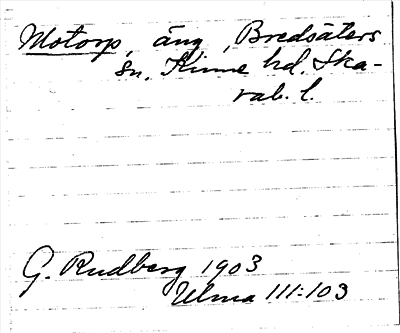 Motorp, äng, Bredsäters
sn, Kinne hd. Ska-
rab. l.
G. Rudberg 1903
Ulma 111:103